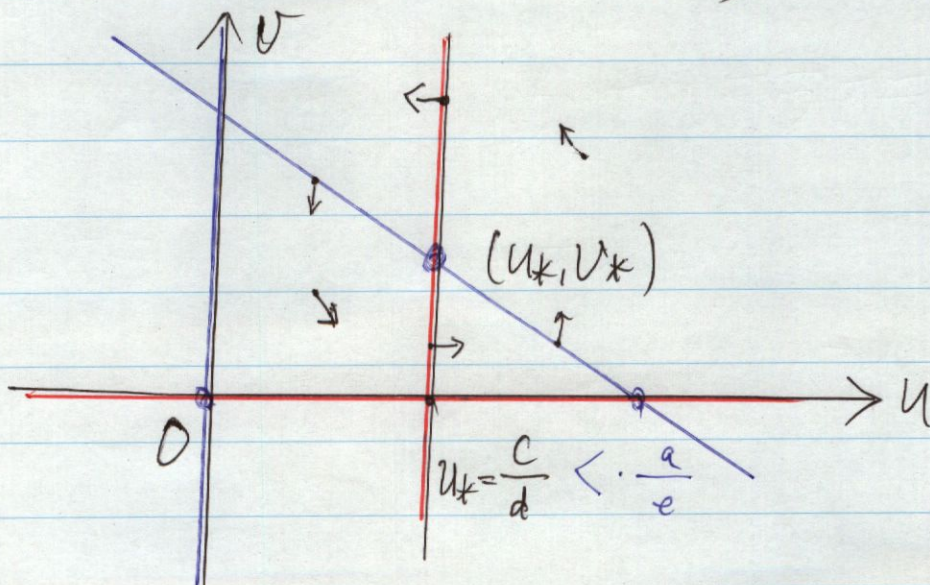 v
(u*, v*)
u
0
u* = c/d < · a/e